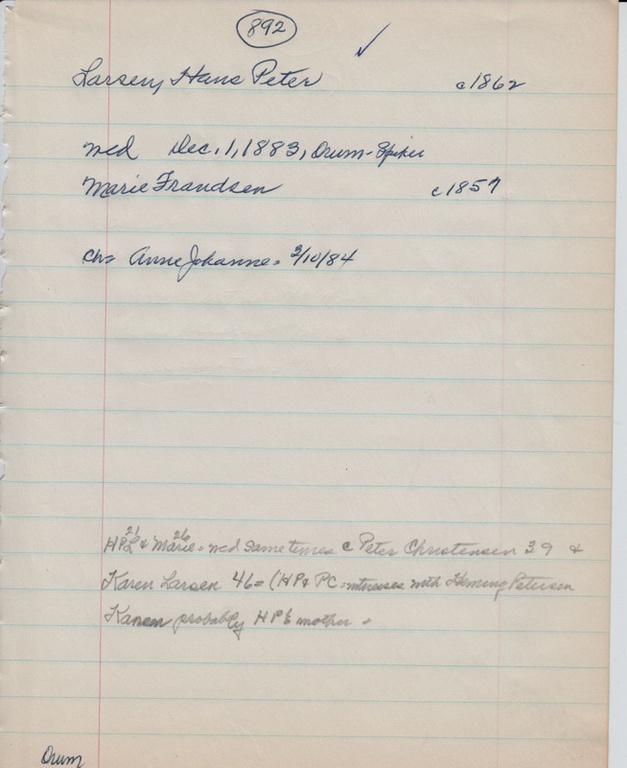 892 ✓
Larsen, Hans Peter c1862
med Dec. 1, 1883, Orum-Spiker
Marie Frandsen c1857
Ch= Anne Johanne = 3/10/84
21 26
HPL & Marie = med same times c Peter Christensen 39 &
Karen Larsen 46 = (HP & PC witnesses with Petersen
Karen probably HP's mother.
Orum